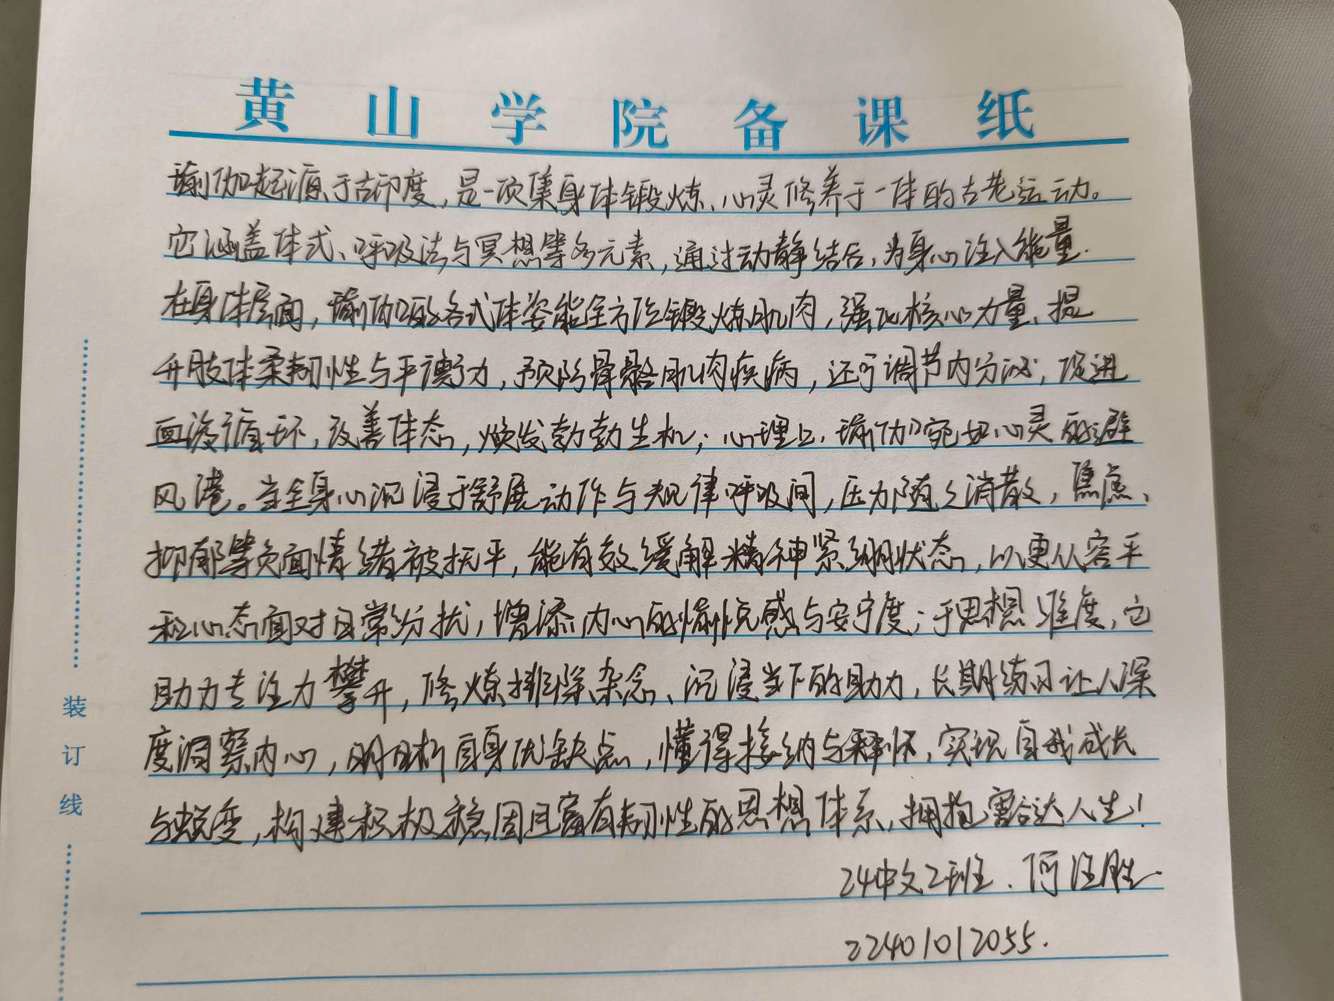 黄山学院备课纸
瑜伽起源于古印度，是一项集身体锻炼、心灵修养于一体的古老运动。
它涵盖体式、呼吸法与冥想等多元素，通过动静结合，为身心注入能量.
在身体层面，瑜伽的各式体姿能全方位锻炼肌肉，强化核心力量、提
升肢体柔韧性与平衡力，预防骨骼肌肉疾病，还可调节内分泌，促进
血液循环，改善体态，焕发勃勃生机；心理上，瑜伽宛如心灵的避
风港。当全身心沉浸于舒展动作与规律呼吸间，压力随之消散，焦虑、
抑郁等负面情绪被抚平，能有效缓解精神紧绷状态，以更从容平
和心态面对日常纷扰，增添内心的愉悦感与安宁度；于思想维度，它
助力专注力攀升，修炼排除杂念、沉浸当下的助力，长期练习让人深
度洞察内心，明晰自身优缺点，懂得接纳与释怀，实现自我成长
与蜕变，构建积极稳固且富有韧性的思想体系，拥抱豁达人生！
24中文2班．何汪胜.
22401012055.
装
订
线